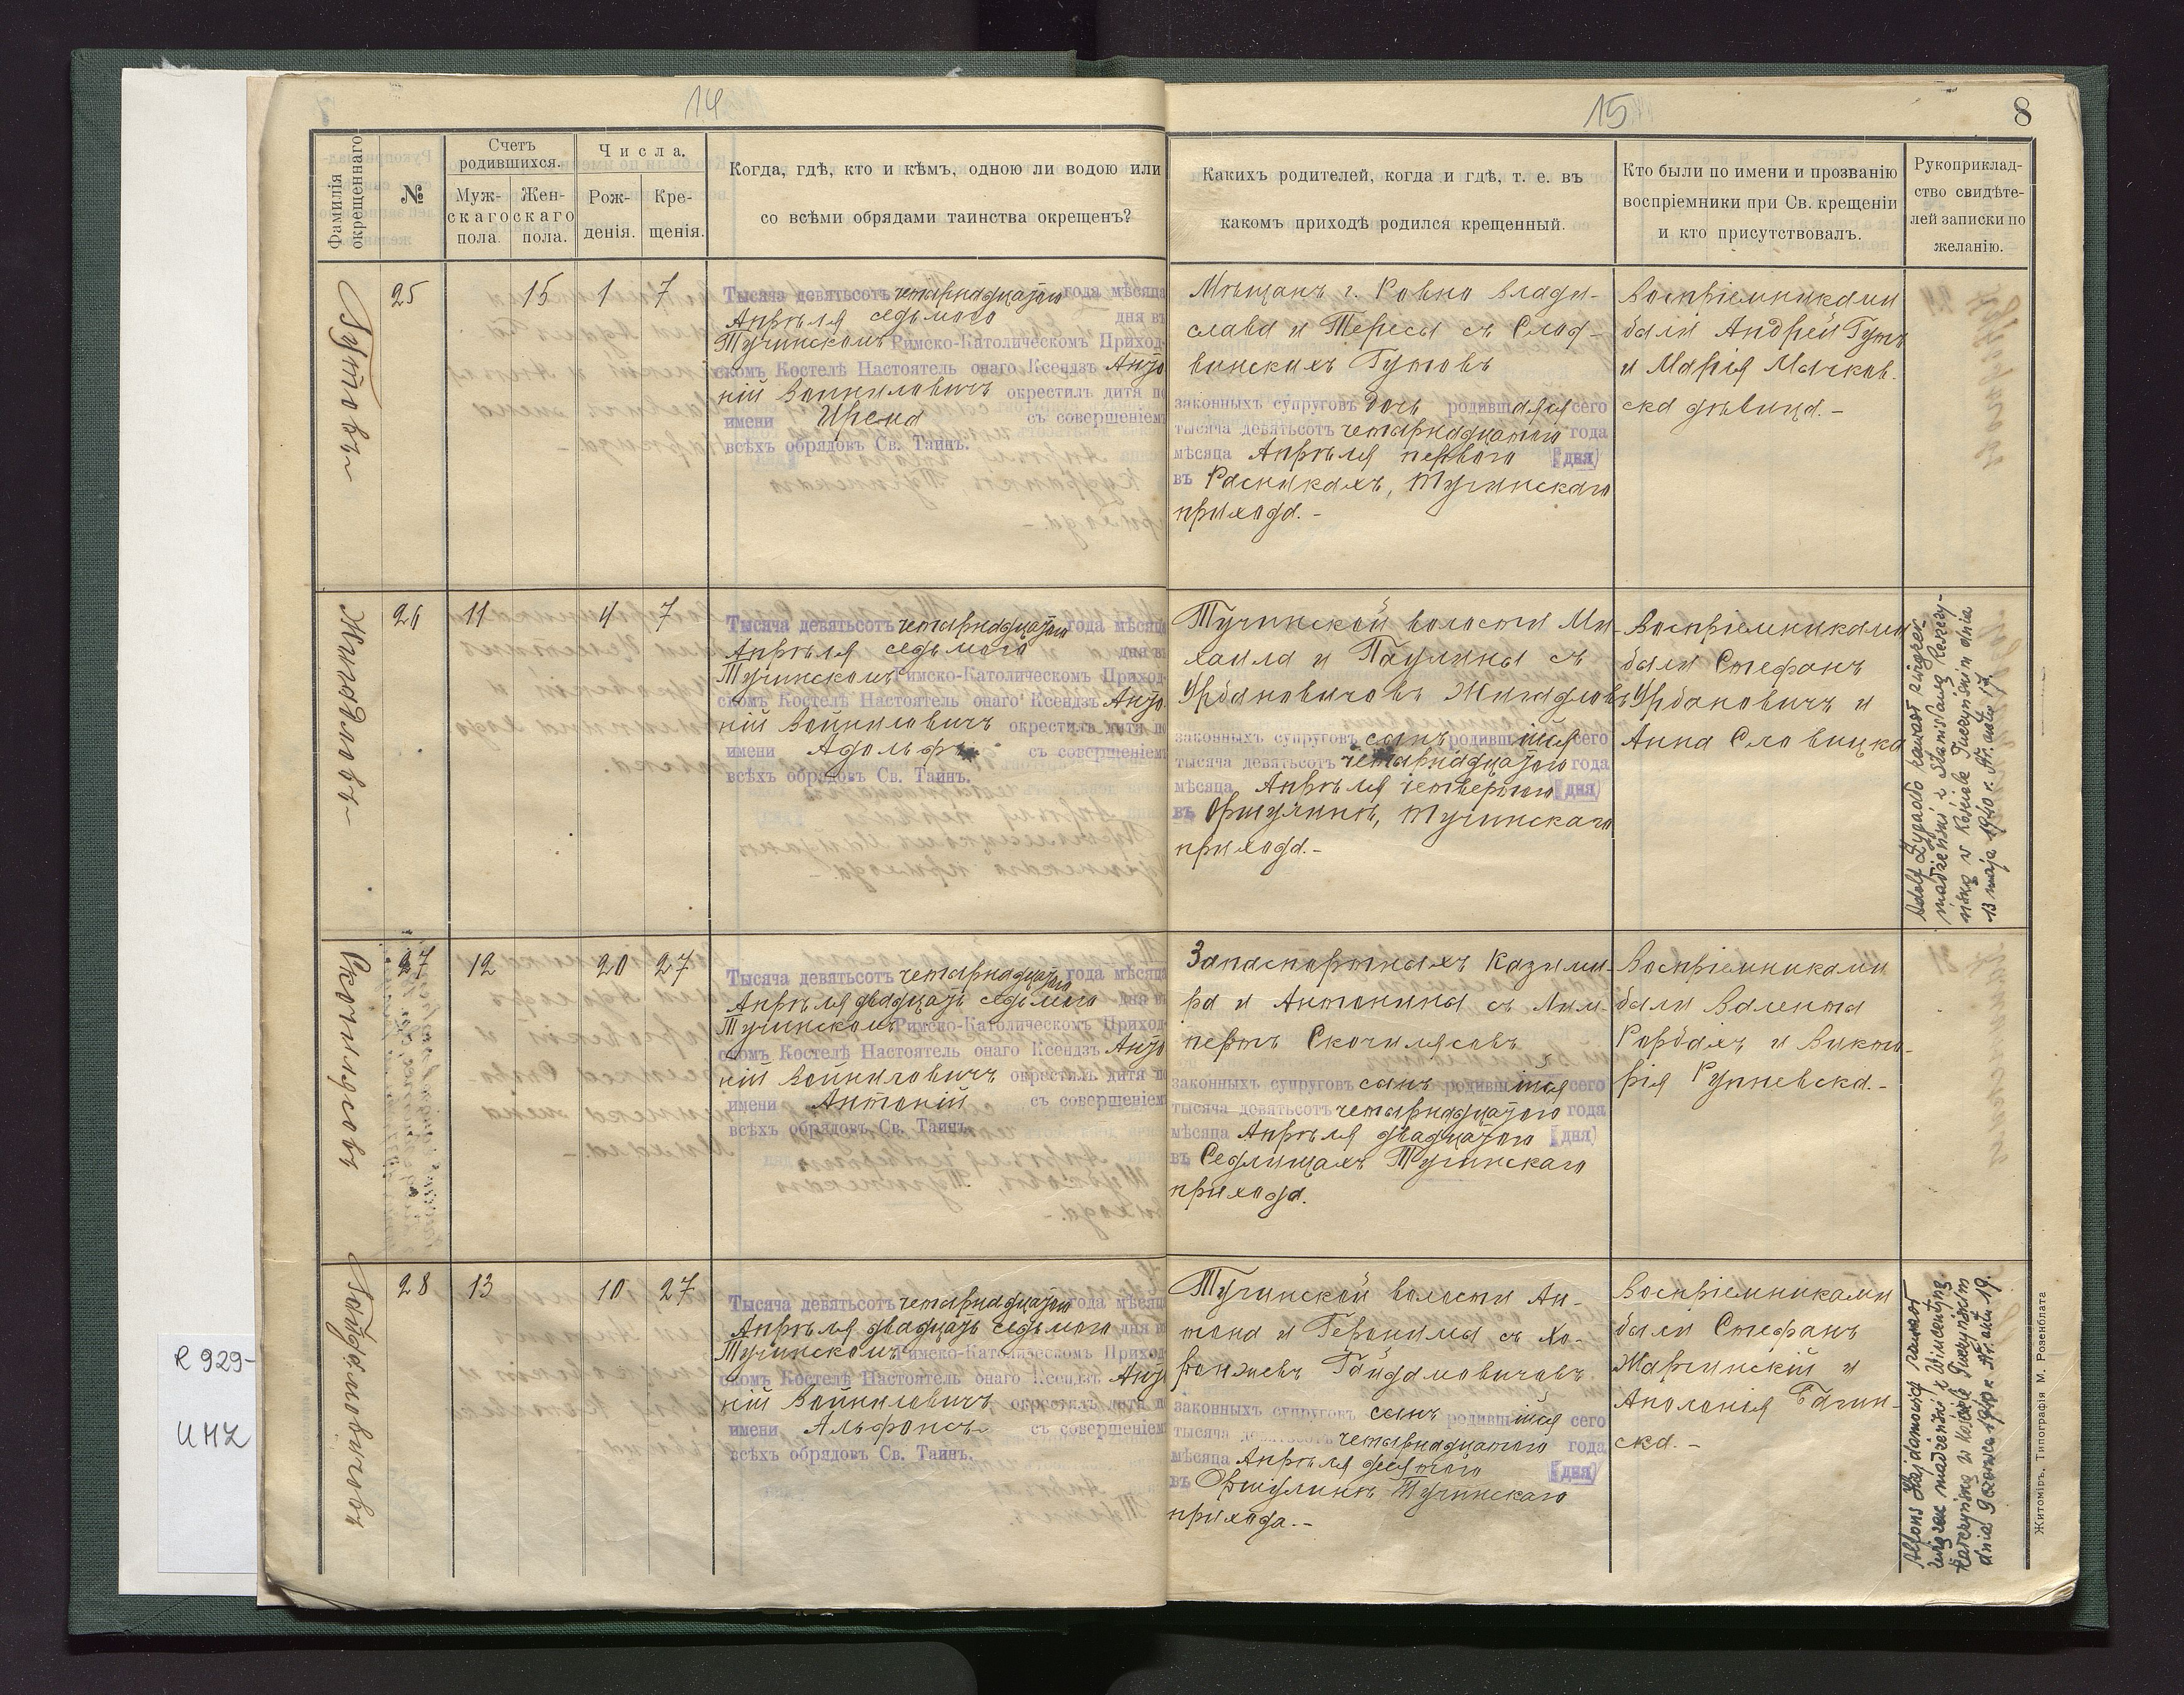 14
15
8
Фамилія окрещеннаго
№
Счетъ родившихся.
Муж-скаго пола.
Жен-скаго пола.
Числа.
Рож-денія.
Кре-щенія.
Когда, гдѣ, кто и кѣмъ, одною ли водою или
со всѣми обрядами таинства окрещенъ?
Какихъ родителей, когда и гдѣ, т. е. въ
какомъ приходѣ родился крещенный.
Кто были по имени и прозванію
воспріемники при Св. крещеніи
и кто присутствовалъ.
Рукоприклад-
ство свидѣте-
лей записки по
желанію.
Гутовъ
25
15
1
7
Тысяча девятьсотъ четырнадцатого года мѣсяца
Апрѣля седьмого дня въ
Тучинскомъ Римско-Католическомъ Приход-
скомъ Костелѣ Настоятель онаго Ксендзъ Анто
ній Войниловичъ окрестилъ дитя по
имени Ирена съ совершеніемъ
всѣхъ обрядовъ Св. Таинъ.
Мѣщанъ г. Ровно Влади-
слава и Тересы съ Слод-
винскихъ Гутовъ
законныхъ супруговъ дочь родившаяся сего
тысяча девятьсотъ четырнадцатого года
мѣсяца Апрѣля первого (дня)
въ Расникахъ, Тучинскаго
прихода.-
Воспріемниками
были Андрей Гутъ
и Марія Мачков-
ска дѣвица.-
Жигадловъ
26
11
4
7
Тысяча девятьсотъ четырнадцатого года мѣсяца
Апрѣля седьмого дня въ
Тучинскомъ Римско-Католическомъ Приход-
скомъ Костелѣ Настоятель онаго Ксендзъ Анто
ній Войниловичъ окрестилъ дитя по
имени Адольфъ съ совершеніемъ
всѣхъ обрядовъ Св. Таинъ.
Тучинской волости Ми-
хаила и Паулины съ
Урбановичовъ Жигадловъ
законныхъ супруговъ сынъ родившійся сего
тысяча девятьсотъ четырнадцатого года
мѣсяца Апрѣля четвертого (дня)
въ Оршулинѣ, Тучинскаго
прихода.-
Воспріемниками
были Стефанъ
Урбановичъ и
Анна Словицка
Adolf Żygadło zawarł związek
małżeński z Stanisławą Keszy-
nską w Kościele Tuczyńskim dnia
13 maja 1940 r. Nr. aktu 17.
Скочилясовъ
27
12
20
27
Тысяча девятьсотъ четырнадцатого года мѣсяца
Апрѣля двадцать седьмого дня въ
Тучинскомъ Римско-Католическомъ Приход-
скомъ Костелѣ Настоятель онаго Ксендзъ Анто
ній Войниловичъ окрестилъ дитя по
имени Антоній съ совершеніемъ
всѣхъ обрядовъ Св. Таинъ.
Запаспортныхъ Казими-
ра и Антонины съ Лим-
пертъ Скочилясовъ
законныхъ супруговъ сынъ родившійся сего
тысяча девятьсотъ четырнадцатого года
мѣсяца Апрѣля двадцатого (дня)
въ Седлищахъ Тучинскаго
прихода.
Воспріемниками
были Валента
Горбахъ и Викто-
рія Рупневска.-
Гайдамовичовъ
28
13
10
27
Тысяча девятьсотъ четырнадцатого года мѣсяца
Апрѣля двадцать седьмого дня въ
Тучинскомъ Римско-Католическомъ Приход-
скомъ Костелѣ Настоятель онаго Ксендзъ Анто
ній Войниловичъ окрестилъ дитя по
имени Альфонсъ съ совершеніемъ
всѣхъ обрядовъ Св. Таинъ.
Тучинской волости Ан-
тона и Геронимы съ Хо-
ронжевъ Гайдамовичовъ
законныхъ супруговъ сынъ родившійся сего
тысяча девятьсотъ четырнадцатого года
мѣсяца Апрѣля десятого (дня)
въ Оршулинѣ Тучинскаго
прихода.-
Воспріемниками
были Стефанъ
Жарчинскій и
Аполонія Багин-
ска.-
Alfons Hajdamowicz zawarł
związek małżeński z Wincentyną
Karczyńską w Kościele Tuczyńskim
dnia 9 czerwca 1940 r. Nr. aktu 19.
Житоміръ, Типографія М. Розенблата
R 929-
UMZ